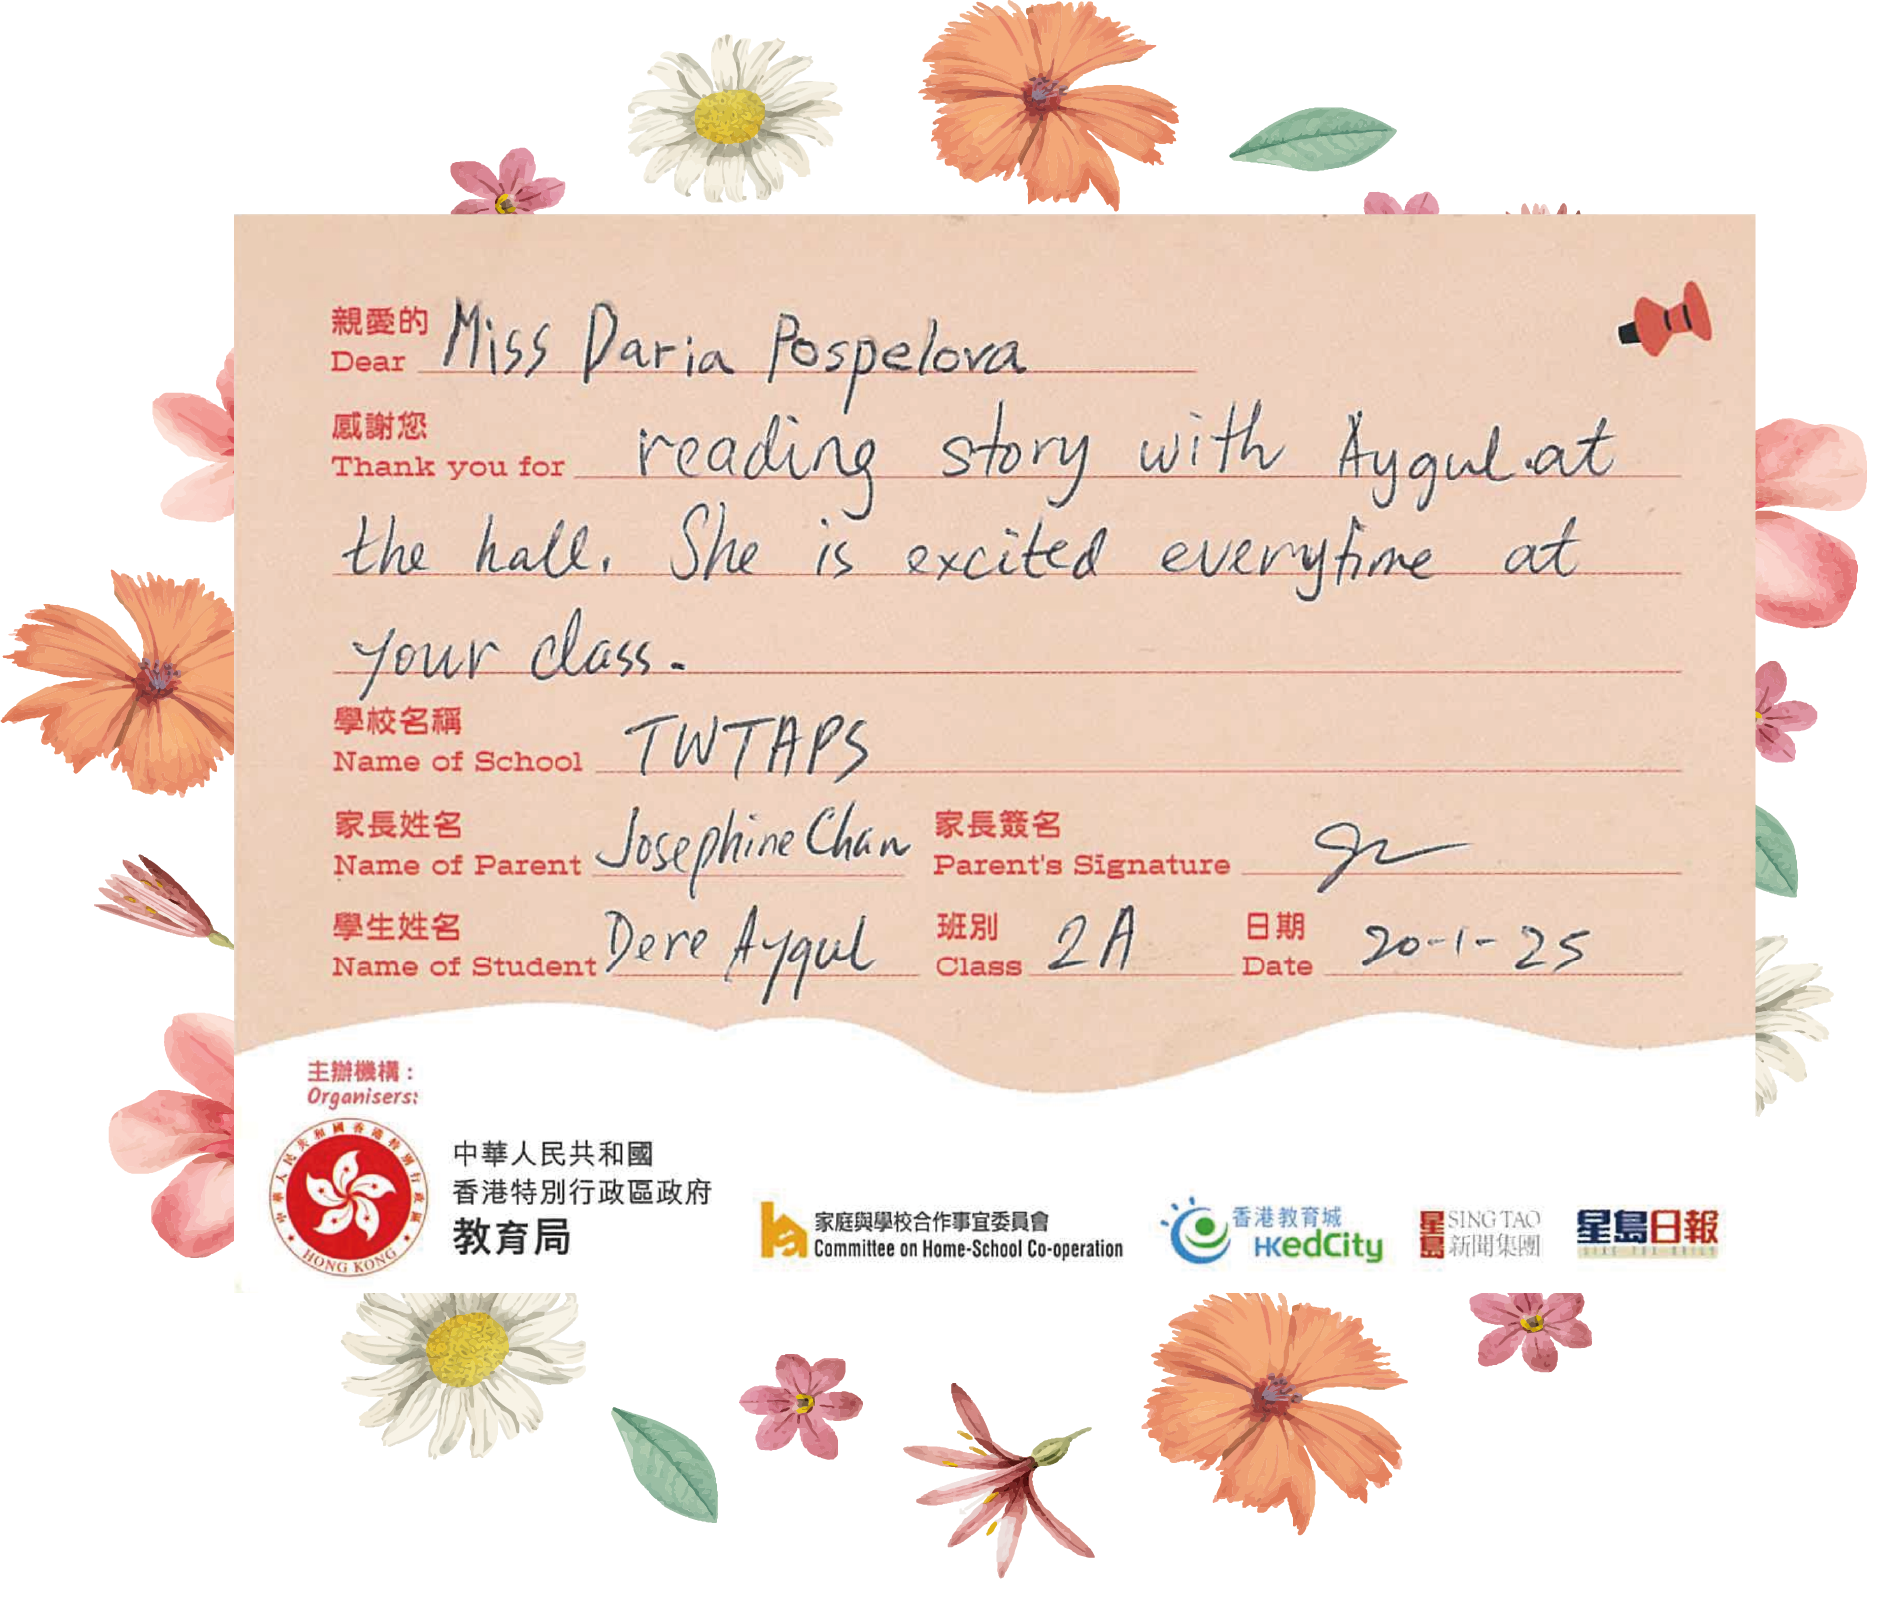 親愛的
Dear Miss Daria Pospelova
感謝您
Thank you for reading story with Aygul at
the hall. She is excited everytime at
your class.
學校名稱
Name of School TWTAPS
家長姓名 家長簽名
Name of Parent Josephine Chan Parent's Signature
學生姓名 班別 日期
Name of Student Dere Aygul Class 2A Date 20-1-25
主辦機構：
Organisers:
中華人民共和國香港特別行政區
HONG KONG
中華人民共和國
香港特別行政區政府
教育局
家庭與學校合作事宜委員會
Committee on Home-School Co-operation
香港教育城
HKedCity
星島 SING TAO
新聞集團
星島日報